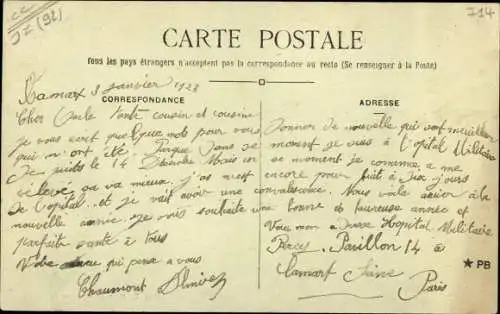 CC
JZ (92)
714
CARTE POSTALE
Tous les pays étrangers n'acceptent pas la correspondance au recto (Se renseigner à la Poste)
CORRESPONDANCE
ADRESSE
Clamart 3 janvier 1923
Cher Oncle Tante cousin et cousine
Je vous écrit quelque mots pour vous donner de nouvelle qui sont meilleur
qui m'ont été dans se moment je suis à l'opital Militaire
Je suis le 14 Mais en se moment je commence a me
relever sa va mieux j'as mest encore pour fuit à Dix jours
De l'opital et je vait avoir une convalescence. Nous voila a la
nouvelle année je vous souhaite une bonne et heureuse année et
parfaite santé à tous
Votre qui pense a vous
Vous mon Hopital Militaire
Percy, Pavillon 14 a
Clamart Seine
Paris
Chaumont
★ PB